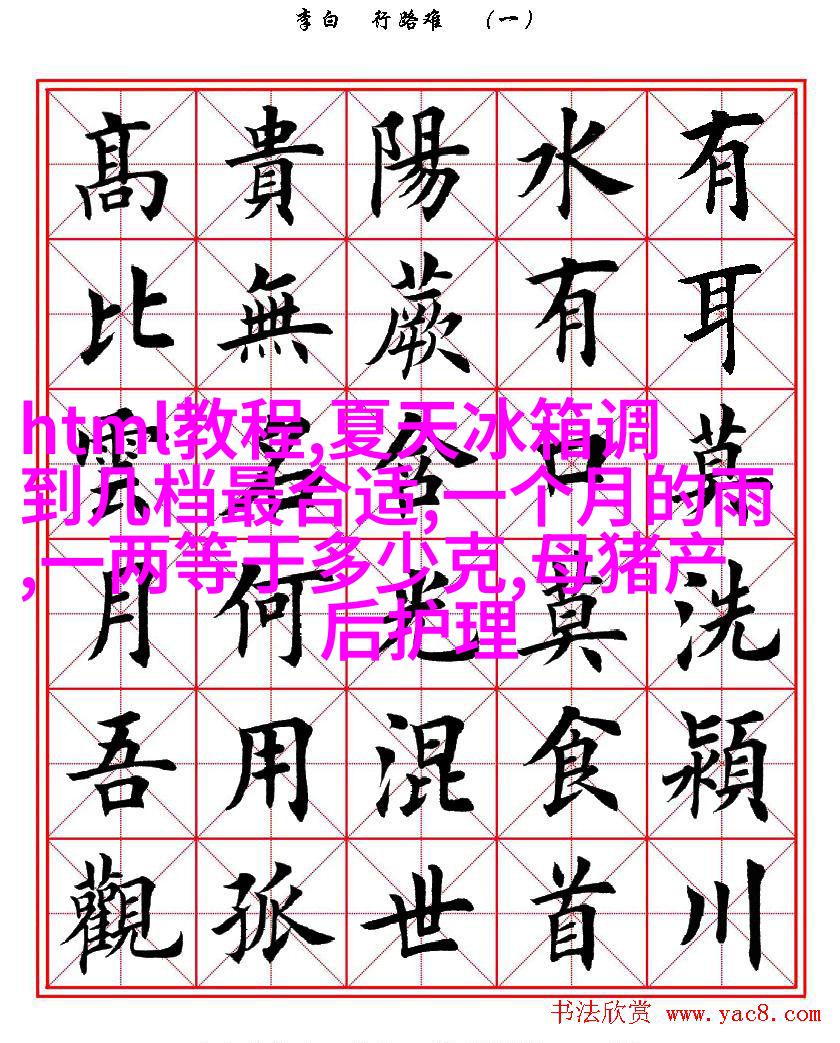 李白 行路难 （一）
有耳莫洗潁川
水有口莫食首
陽蕨含光混世
貴無名何用孤
髙比雲月吾觀
html教程,夏天冰箱调
到几档最合适,一个月的雨
,一两等于多少克,母猪产
后护理
书法欣赏 www.yac8.com